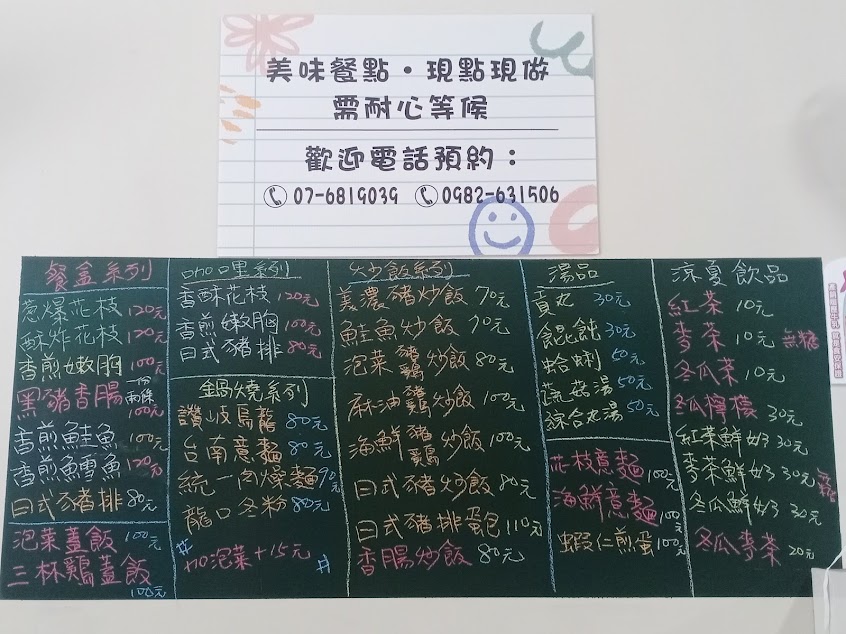 美味餐點・現點現做
需耐心等候
歡迎電話預約：
07-6819039 0982-631506
餐盒系列
蔥爆花枝 120元
酥炸花枝 120元
香煎嫩胸 100元
黑豬香腸 一份兩條 100元
香煎鮭魚 100元
香煎鱈魚 120元
日式豬排 80元
泡菜蓋飯 100元
三杯鷄蓋飯 100元
咖哩系列
香酥花枝 120元
香煎嫩胸 100元
日式豬排 80元
鍋燒系列
讚岐烏龍 80元
台南意麵 80元
統一肉燥麵 90元
龍口冬粉 80元
# 加泡菜+15元 #
炒飯系列
美濃豬炒飯 70元
鮭魚炒飯 90元
泡菜豬鷄炒飯 80元
麻油豬鷄炒飯 100元
海鮮豬鷄炒飯 100元
日式豬炒飯 80元
日式豬排蛋包 110元
香腸炒飯 80元
湯品
貢丸 30元
餛飩 30元
蛤蜊 50元
蔬菇湯 50元
綜合丸湯 50元
花枝意麵 100元
海鮮意麵 100元
蝦仁煎蛋 100元
涼夏飲品
紅茶 10元
麥茶 10元 無糖
冬瓜茶 10元
冬瓜檸檬 30元
紅茶鮮奶 30元
麥茶鮮奶 30元 無糖
冬瓜鮮奶 30元
冬瓜麥茶 20元